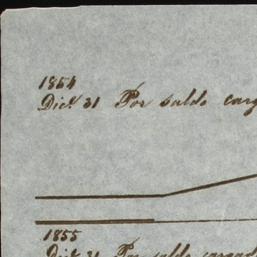 1854
Dic.e 31 Por saldo carg
1855
Dic.e 31 Por saldo cargad